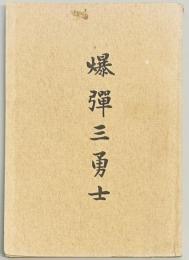 爆彈三勇士